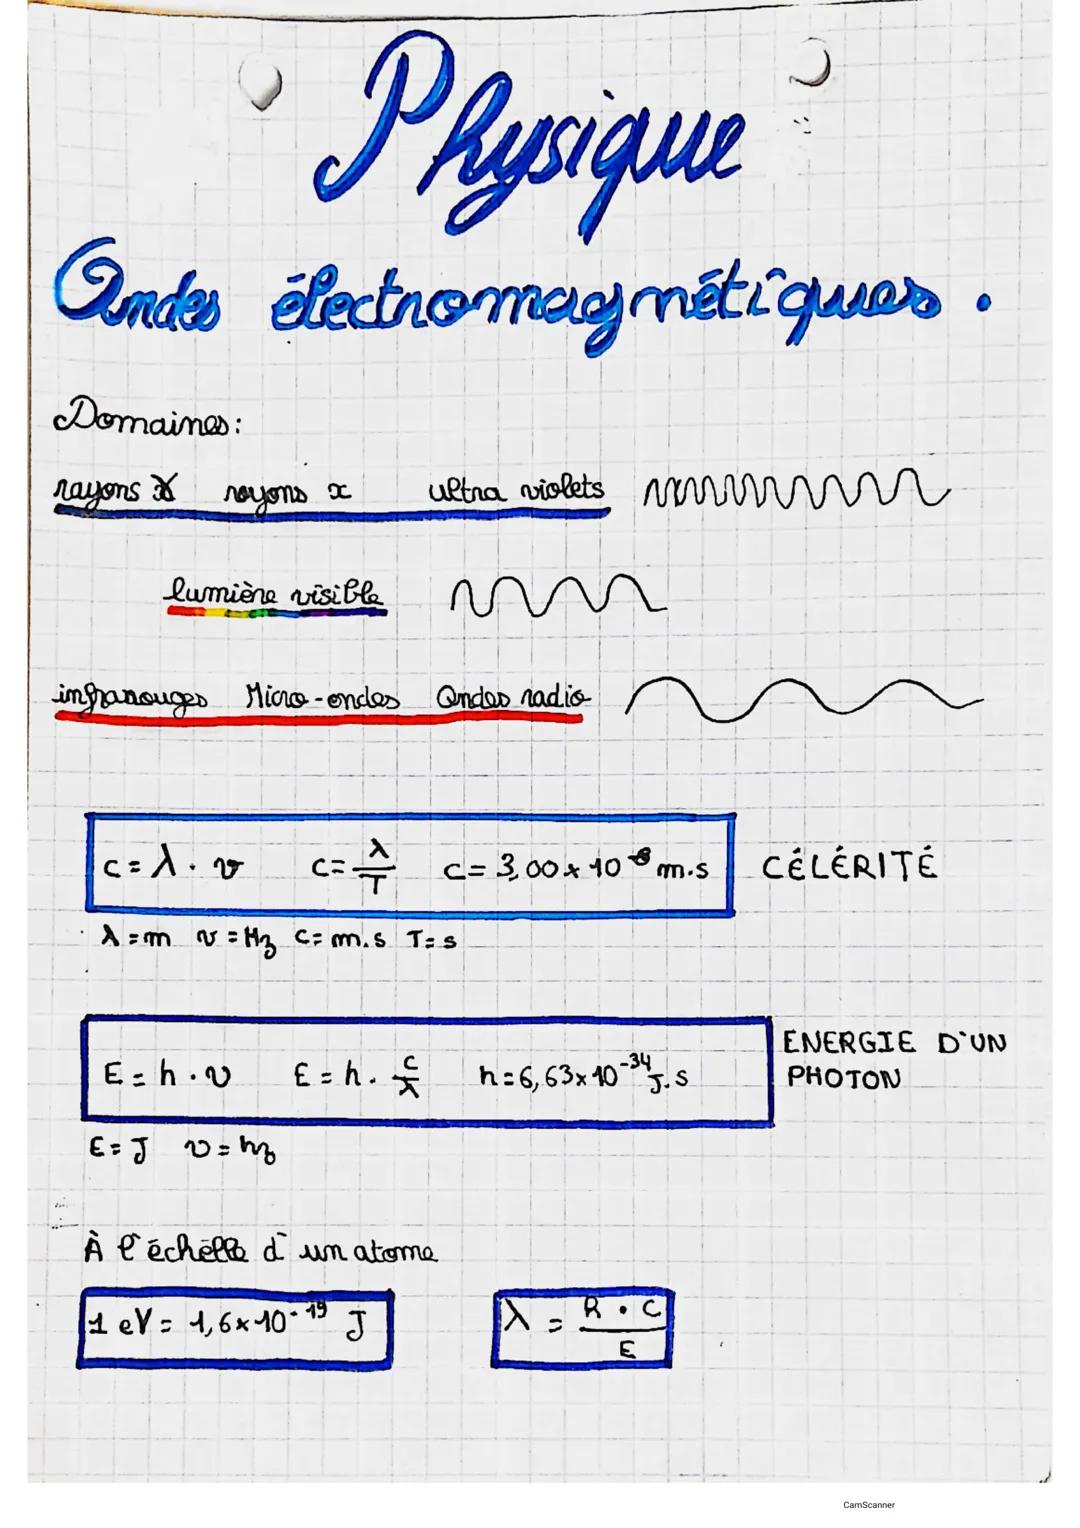 Physique
Ondes électromagnétiques.
Domaines:
rayons γ rayons x ultra violets
lumière visible
infrarouges Micro-ondes Ondes radio
c = λ . ν c = λ/T c = 3,00 × 10⁸ m.s CÉLÉRITÉ
λ = m ν = Hz c = m.s T = s
E = h . ν E = h . c/λ h = 6,63 × 10⁻³⁴ J.s ENERGIE D'UN
PHOTON
E = J ν = hz
À l'échelle d'un atome
1 eV = 1,6 × 10⁻¹⁹ J λ = h . c / E
CamScanner